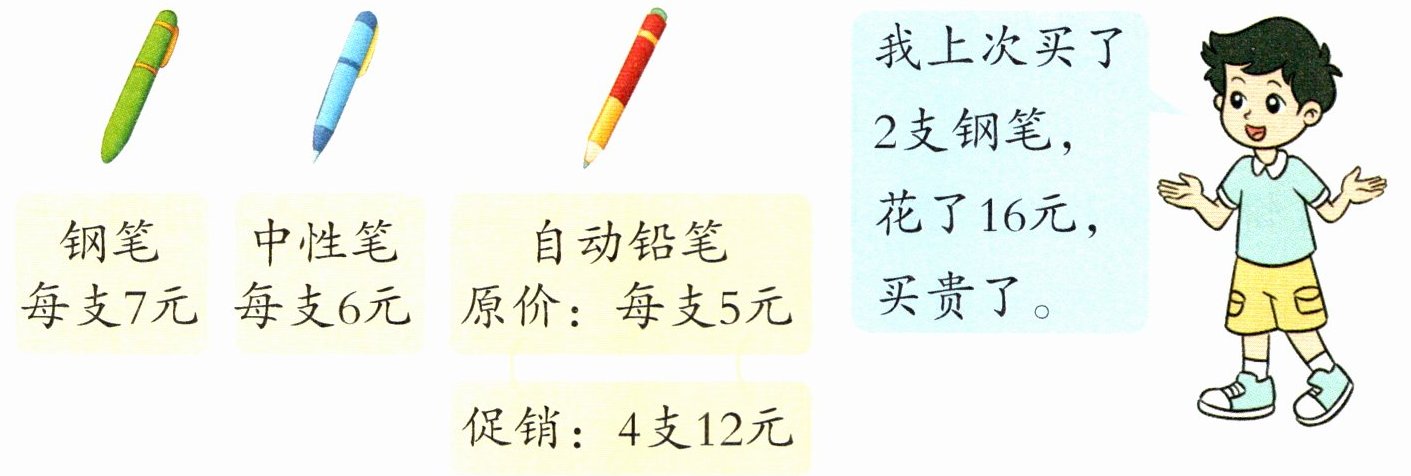 钢笔
每支7元
中性笔
每支6元
自动铅笔
原价：每支5元
促销：4支12元
我上次买了
2支钢笔，
花了16元，
买贵了。